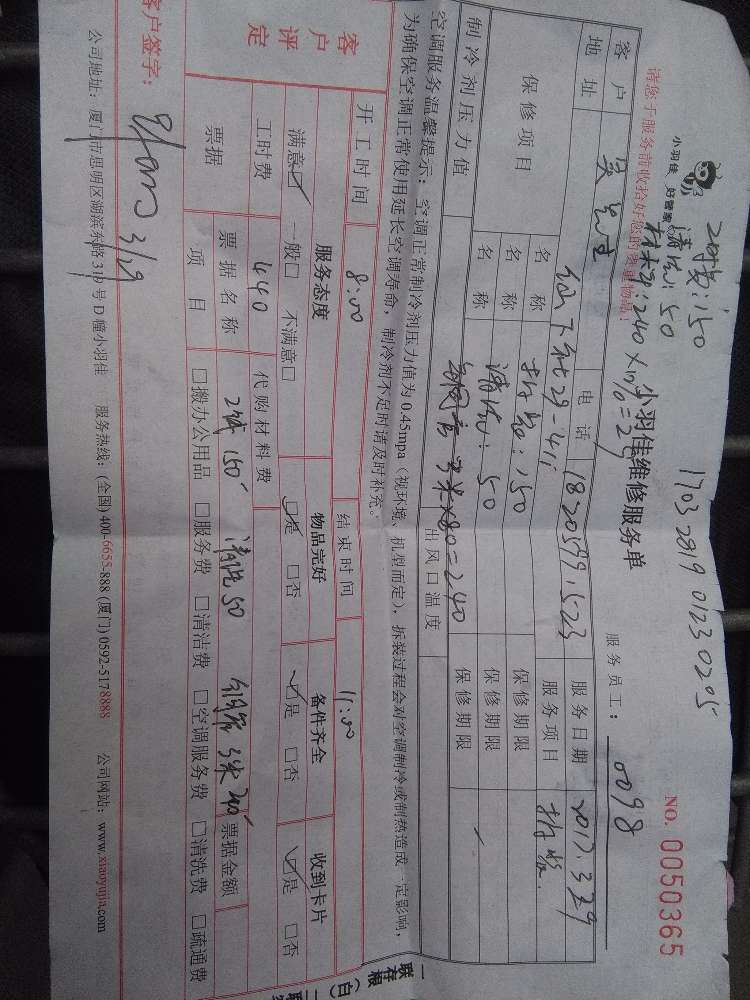 小羽佳 好管家
拆装:150
清洗:50
材料:240
1703 2819 0123 0205
NO. 0050365
请您于服务前收拾好您的贵重物品!
小羽佳维修服务单
服务员工: 0098
客户 吴先生 电话 18205991523 服务日期 2017.3.29
地址 29-411 服务项目 拆装
保修项目 名称 拆装:150 保修期限
名称 清洗:50 保修期限
名称 铜管 3米×80=240 保修期限
制冷剂压力值 出风口温度
空调服务温馨提示:空调正常制冷剂压力值为0.45mpa(视环境、机型而定),拆装过程会对空调制冷或制热造成一定影响,
为确保空调正常使用延长空调寿命,制冷剂不足时请及时补充。
开工时间 8:00 结束时间 11:00
客户评定 服务态度 物品完好 备件齐全 收到卡片
满意☑ 一般□ 不满意□ ☑是 □否 ☑是 □否 ☑是 □否
工时费 440 代购材料费
票据 票据名称 150 清洗50 铜管3米240 票据金额
项目 □搬办公用品 □服务费 □清洁费 □空调服务费 □清洗费 □疏通费
客户签字: 3/29
公司地址:厦门市思明区湖滨东路319号D幢小羽佳 服务热线:(全国)400-6655-888 (厦门)0592-5178888 公司网站:www.xiaoyujia.com
一联存根(白)二联